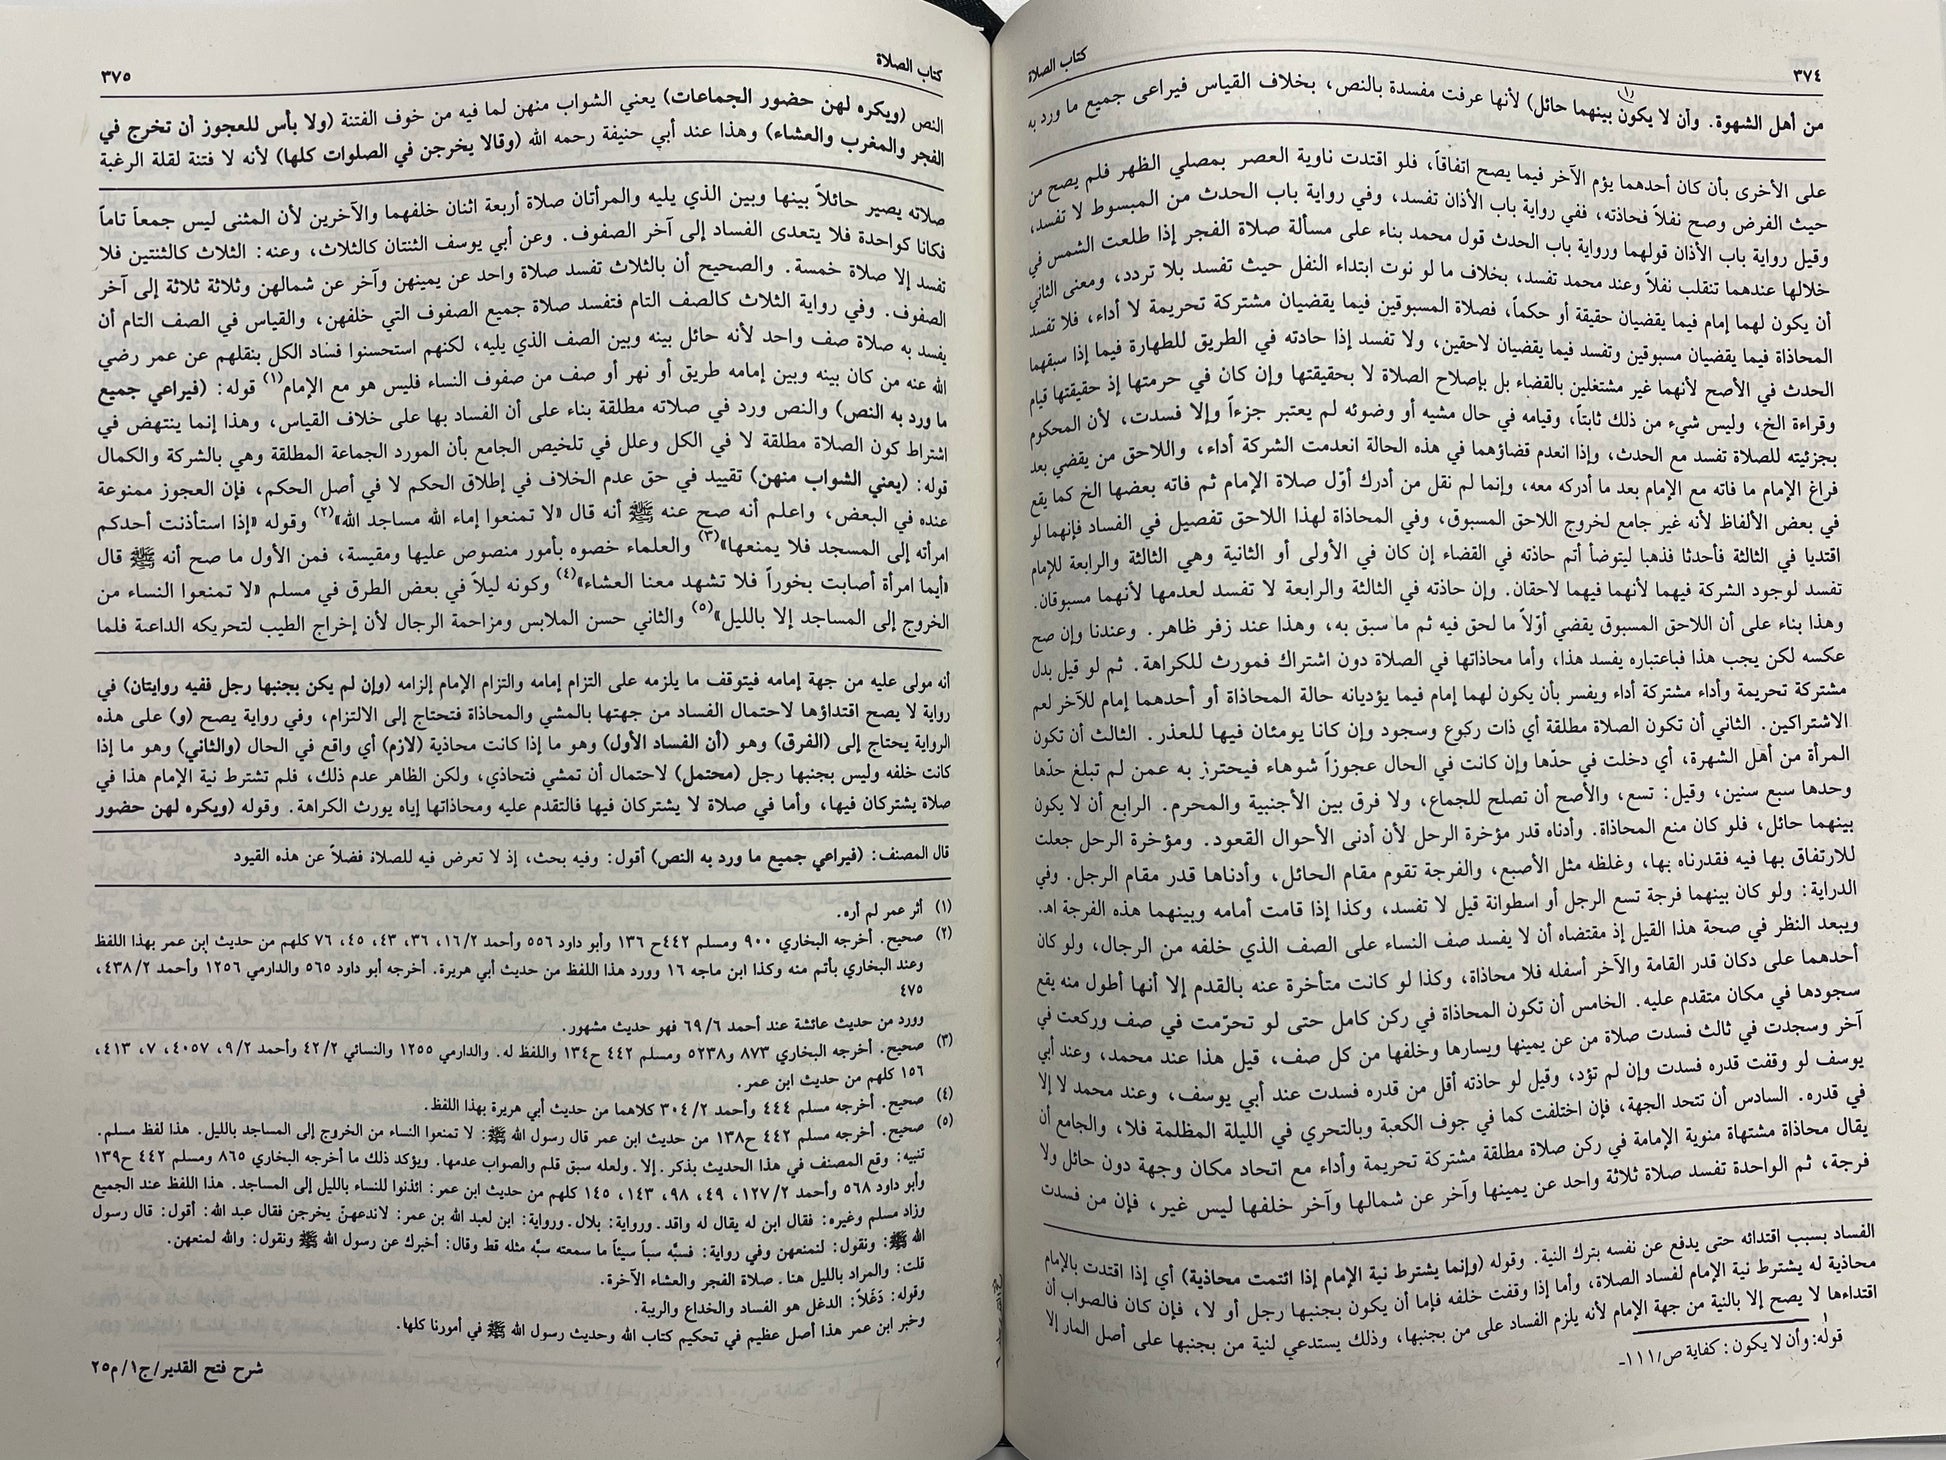 ٣٧٤
كتاب الصلاة
من أهل الشهوة. وأن لا يكون(١) بينهما حائل) لأنها عرفت مفسدة بالنص، بخلاف القياس فيراعى جميع ما ورد به
على الأخرى بأن كان أحدهما يؤم الآخر فيما يصح اتفاقاً، فلو اقتدت ناوية العصر بمصلي الظهر فلم يصح من
حيث الفرض وصح نفلاً فحاذته، ففي رواية باب الأذان تفسد، وفي رواية باب الحدث من المبسوط لا تفسد،
وقيل رواية باب الأذان قولهما ورواية باب الحدث قول محمد بناء على مسألة صلاة الفجر إذا طلعت الشمس في
خلالها عندهما تنقلب نفلاً وعند محمد تفسد، بخلاف ما لو نوت ابتداء النفل حيث تفسد بلا تردد، ومعنى الثاني
أن يكون لهما إمام فيما يقضيان حقيقة أو حكماً، فصلاة المسبوقين فيما يقضيان مشتركة تحريمة لا أداء، فلا تفسد
المحاذاة فيما يقضيان مسبوقين وتفسد فيما يقضيان لاحقين، ولا تفسد إذا حاذته في الطريق للطهارة فيما إذا سبقهما
الحدث في الأصح لأنهما غير مشتغلين بالقضاء بل بإصلاح الصلاة لا بحقيقتها وإن كان في حرمتها إذ حقيقتها قيام
وقراءة الخ، وليس شيء من ذلك ثابتاً، وقيامه في حال مشيه أو وضوئه لم يعتبر جزءاً وإلا فسدت، لأن المحكوم
بجزئيته للصلاة تفسد مع الحدث، وإذا انعدم قضاؤهما في هذه الحالة انعدمت الشركة أداء، واللاحق من يقضي بعد
فراغ الإمام ما فاته مع الإمام بعد ما أدركه معه، وإنما لم نقل من أدرك أوّل صلاة الإمام ثم فاته بعضها الخ كما يقع
في بعض الألفاظ لأنه غير جامع لخروج اللاحق المسبوق، وفي المحاذاة لهذا اللاحق تفصيل في الفساد فإنهما لو
اقتديا في الثالثة فأحدثا فذهبا ليتوضأ أتم حاذته في القضاء إن كان في الأولى أو الثانية وهي الثالثة والرابعة للإمام
تفسد لوجود الشركة فيهما لأنهما فيهما لاحقان. وإن حاذته في الثالثة والرابعة لا تفسد لعدمها لأنهما مسبوقان.
وهذا بناء على أن اللاحق المسبوق يقضي أوّلاً ما لحق فيه ثم ما سبق به، وهذا عند زفر ظاهر. وعندنا وإن صح
عكسه لكن يجب هذا فباعتباره يفسد هذا، وأما محاذاتها في الصلاة دون اشتراك فمورث للكراهة. ثم لو قيل بدل
مشتركة تحريمة وأداء مشتركة أداء ويفسر بأن يكون لهما إمام فيما يؤديانه حالة المحاذاة أو أحدهما إمام للآخر لعم
الاشتراكين. الثاني أن تكون الصلاة مطلقة أي ذات ركوع وسجود وإن كانا يومئان فيها للعذر. الثالث أن تكون
المرأة من أهل الشهرة، أي دخلت في حدّها وإن كانت في الحال عجوزاً شوهاء فيحترز به عمن لم تبلغ حدّها
وحدها سبع سنين، وقيل: تسع، والأصح أن تصلح للجماع، ولا فرق بين الأجنبية والمحرم. الرابع أن لا يكون
بينهما حائل، فلو كان منع المحاذاة. وأدناه قدر مؤخرة الرحل لأن أدنى الأحوال القعود. ومؤخرة الرحل جعلت
للارتفاق بها فيه فقدرناه بها، وغلظه مثل الأصبع، والفرجة تقوم مقام الحائل، وأدناها قدر مقام الرجل. وفي
الدراية: ولو كان بينهما فرجة تسع الرجل أو اسطوانة قيل لا تفسد، وكذا إذا قامت أمامه وبينهما هذه الفرجة اهـ.
ويبعد النظر في صحة هذا القيل إذ مقتضاه أن لا يفسد صف النساء على الصف الذي خلفه من الرجال، ولو كان
أحدهما على دكان قدر القامة والآخر أسفله فلا محاذاة، وكذا لو كانت متأخرة عنه بالقدم إلا أنها أطول منه يقع
سجودها في مكان متقدم عليه. الخامس أن تكون المحاذاة في ركن كامل حتى لو تحرّمت في صف وركعت في
آخر وسجدت في ثالث فسدت صلاة من عن يمينها ويسارها وخلفها من كل صف، قيل هذا عند محمد، وعند أبي
يوسف لو وقفت قدره فسدت وإن لم تؤد، وقيل لو حاذته أقل من قدره فسدت عند أبي يوسف، وعند محمد لا إلا
في قدره. السادس أن تتحد الجهة، فإن اختلفت كما في جوف الكعبة وبالتحري في الليلة المظلمة فلا، والجامع أن
يقال محاذاة مشتهاة منوية الإمامة في ركن صلاة مطلقة مشتركة تحريمة وأداء مع اتحاد مكان وجهة دون حائل ولا
فرجة، ثم الواحدة تفسد صلاة ثلاثة واحد عن يمينها وآخر عن شمالها وآخر خلفها ليس غير، فإن من فسدت
الفساد بسبب اقتدائه حتى يدفع عن نفسه بترك النية. وقوله (وإنما يشترط نية الإمام إذا ائتمت محاذية) أي إذا اقتدت بالإمام
محاذية له يشترط نية الإمام لفساد الصلاة، وأما إذا وقفت خلفه فإما أن يكون بجنبها رجل أو لا، فإن كان فالصواب أن
اقتداءها لا يصح إلا بالنية من جهة الإمام لأنه يلزم الفساد على من بجنبها، وذلك يستدعي لنية من بجنبها على أصل المار إلا
قوله: وأن لا يكون: كفاية ص/١١١-
كتاب الصلاة
٣٧٥
النص (ويكره لهن حضور الجماعات) يعني الشواب منهن لما فيه من خوف الفتنة (ولا بأس للعجوز أن تخرج في
الفجر والمغرب والعشاء) وهذا عند أبي حنيفة رحمه الله (وقالا يخرجن في الصلوات كلها) لأنه لا فتنة لقلة الرغبة
صلاته يصير حائلاً بينها وبين الذي يليه والمرأتان صلاة أربعة اثنان خلفهما والآخرين لأن المثنى ليس جمعاً تاماً
فكانا كواحدة فلا يتعدى الفساد إلى آخر الصفوف. وعن أبي يوسف الثنتان كالثلاث، وعنه: الثلاث كالثنتين فلا
تفسد إلا صلاة خمسة. والصحيح أن بالثلاث تفسد صلاة واحد عن يمينهن وآخر عن شمالهن وثلاثة ثلاثة إلى آخر
الصفوف. وفي رواية الثلاث كالصف التام فتفسد صلاة جميع الصفوف التي خلفهن، والقياس في الصف التام أن
يفسد به صلاة صف واحد لأنه حائل بينه وبين الصف الذي يليه، لكنهم استحسنوا فساد الكل بنقلهم عن عمر رضي
الله عنه من كان بينه وبين إمامه طريق أو نهر أو صف من صفوف النساء فليس هو مع الإمام(١) قوله: (فيراعي جميع
ما ورد به النص) والنص ورد في صلاته مطلقة بناء على أن الفساد بها على خلاف القياس، وهذا إنما ينتهض في
اشتراط كون الصلاة مطلقة لا في الكل وعلل في تلخيص الجامع بأن المورد الجماعة المطلقة وهي بالشركة والكمال
قوله: (يعني الشواب منهن) تقييد في حق عدم الخلاف في إطلاق الحكم لا في أصل الحكم، فإن العجوز ممنوعة
عنده في البعض، واعلم أنه صح عنه ﷺ أنه قال «لا تمنعوا إماء الله مساجد الله»(٢) وقوله «إذا استأذنت أحدكم
امرأته إلى المسجد فلا يمنعها»(٣) والعلماء خصوه بأمور منصوص عليها ومقيسة، فمن الأول ما صح أنه ﷺ قال
«أيما امرأة أصابت بخوراً فلا تشهد معنا العشاء»(٤) وكونه ليلاً في بعض الطرق في مسلم «لا تمنعوا النساء من
الخروج إلى المساجد إلا بالليل»(٥) والثاني حسن الملابس ومزاحمة الرجال لأن إخراج الطيب لتحريكه الداعية فلما
أنه مولى عليه من جهة إمامه فيتوقف ما يلزمه على التزام إمامه والتزام الإمام إلزامه (وإن لم يكن بجنبها رجل ففيه روايتان) في
رواية لا يصح اقتداؤها لاحتمال الفساد من جهتها بالمشي والمحاذاة فتحتاج إلى الالتزام، وفي رواية يصح (و) على هذه
الرواية يحتاج إلى (الفرق) وهو (أن الفساد الأول) وهو ما إذا كانت محاذية (لازم) أي واقع في الحال (والثاني) وهو ما إذا
كانت خلفه وليس بجنبها رجل (محتمل) لاحتمال أن تمشي فتحاذي، ولكن الظاهر عدم ذلك، فلم تشترط نية الإمام هذا في
صلاة يشتركان فيها، وأما في صلاة لا يشتركان فيها فالتقدم عليه ومحاذاتها إياه يورث الكراهة. وقوله (ويكره لهن حضور
قال المصنف: (فيراعي جميع ما ورد به النص) أقول: وفيه بحث، إذ لا تعرض فيه للصلاة فضلاً عن هذه القيود
(١) أثر عمر لم أره.
(٢) صحيح. أخرجه البخاري ٩٠٠ ومسلم ٤٤٢ح ١٣٦ وأبو داود ٥٥٦ وأحمد ١٦/٢، ٣٦، ٤٣، ٤٥، ٧٦ كلهم من حديث ابن عمر بهذا اللفظ
وعند البخاري بأتم منه وكذا ابن ماجه ١٦ وورد هذا اللفظ من حديث أبي هريرة. أخرجه أبو داود ٥٦٥ والدارمي ١٢٥٦ وأحمد ٤٣٨/٢،
٤٧٥
وورد من حديث عائشة عند أحمد ٦٩/٦ فهو حديث مشهور.
(٣) صحيح. أخرجه البخاري ٨٧٣ و٥٢٣٨ ومسلم ٤٤٢ ح١٣٤ واللفظ له. والدارمي ١٢٥٥ والنسائي ٤٢/٢ وأحمد ٩/٢، ٤٠٥٧، ٧، ٤١٣،
١٥٦ كلهم من حديث ابن عمر.
(٤) صحيح. أخرجه مسلم ٤٤٤ وأحمد ٣٠٤/٢ كلاهما من حديث أبي هريرة بهذا اللفظ.
(٥) صحيح. أخرجه مسلم ٤٤٢ ح١٣٨ من حديث ابن عمر قال رسول الله ﷺ: لا تمنعوا النساء من الخروج إلى المساجد بالليل. هذا لفظ مسلم.
تنبيه: وقع المصنف في هذا الحديث بذكر. إلا. ولعله سبق قلم والصواب عدمها. ويؤكد ذلك ما أخرجه البخاري ٨٦٥ ومسلم ٤٤٢ ح١٣٩
وأبو داود ٥٦٨ وأحمد ١٢٧/٢، ٤٩، ٩٨، ١٤٣، ١٤٥ كلهم من حديث ابن عمر: ائذنوا للنساء بالليل إلى المساجد. هذا اللفظ عند الجميع
وزاد مسلم وغيره: فقال ابن له يقال له واقد. ورواية: بلال. ورواية: ابن لعبد الله بن عمر: لاندعهنّ يخرجن فقال عبد الله: أقول: قال رسول
الله ﷺ: ونقول: لنمنعهن وفي رواية: فسبَّه سباً سيئاً ما سمعته سبَّه مثله قط وقال: أخبرك عن رسول الله ﷺ ونقول: والله لمنعهن.
قلت: والمراد بالليل هنا. صلاة الفجر والعشاء الآخرة.
وقوله: دَغَلاً: الدغل هو الفساد والخداع والريبة.
وخبر ابن عمر هذا أصل عظيم في تحكيم كتاب الله وحديث رسول الله ﷺ في أمورنا كلها.
شرح فتح القدير/ج١/م٢٥